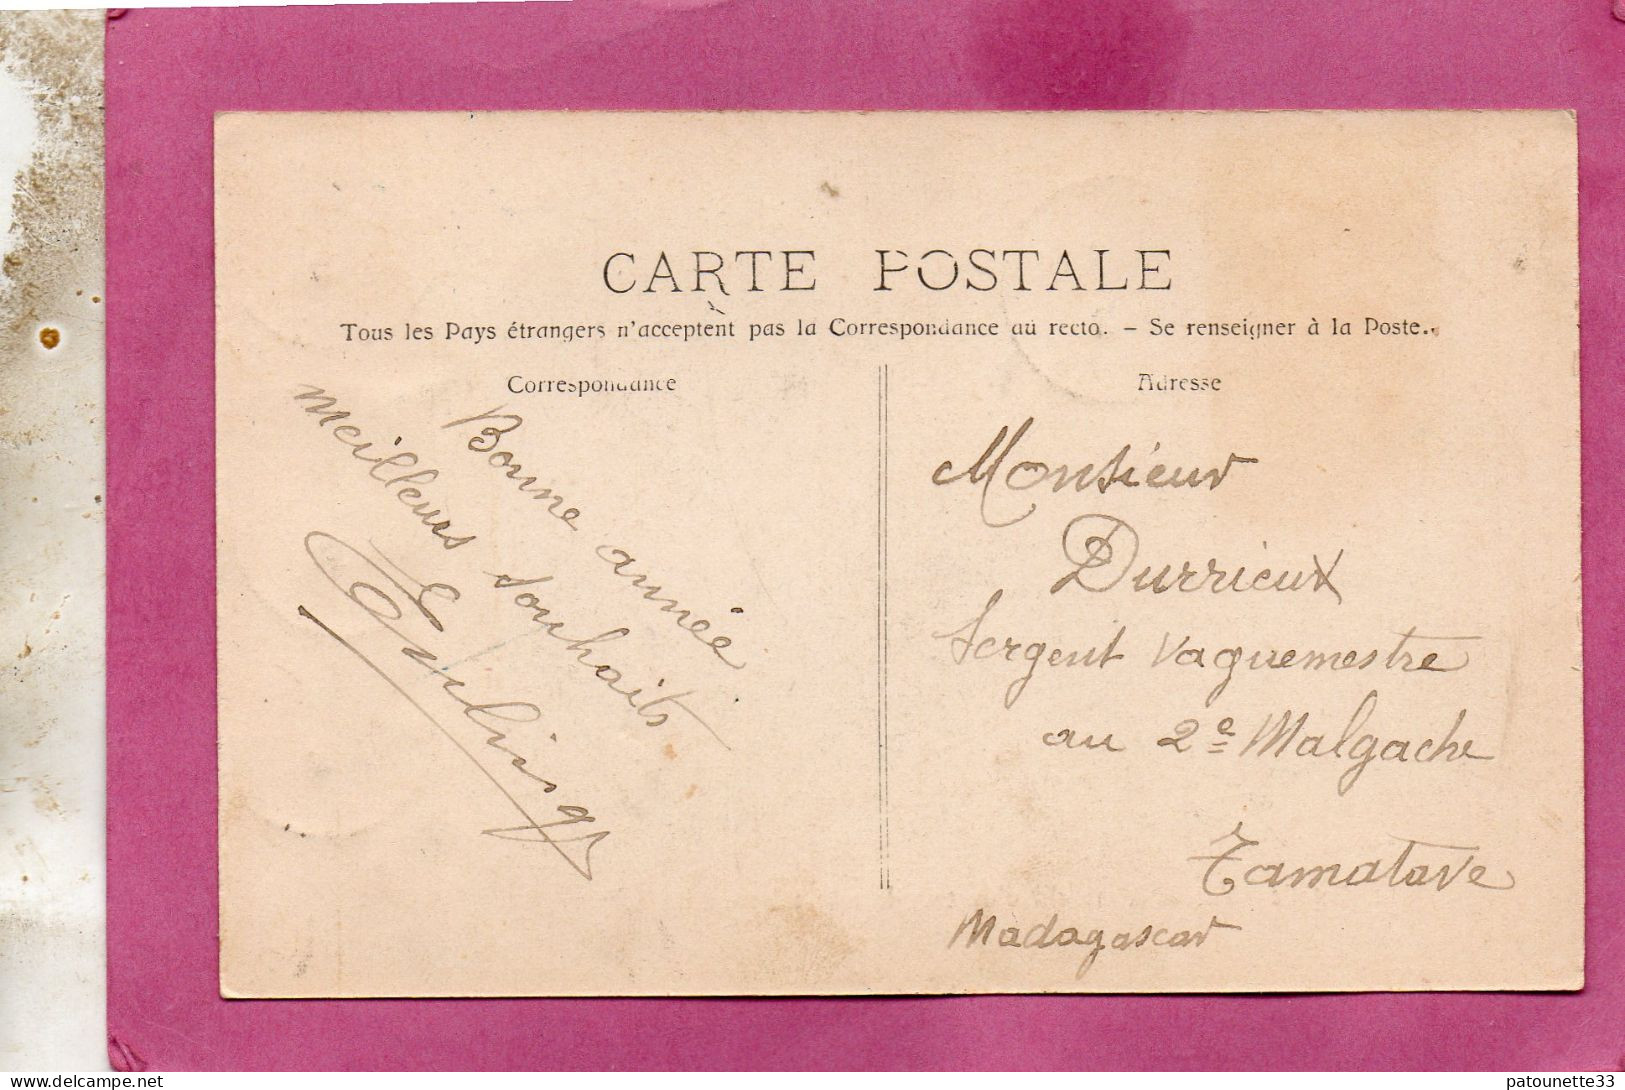 CARTE POSTALE
Tous les Pays étrangers n'acceptent pas la Correspondance au recto. – Se renseigner à la Poste.
Correspondance
Bonne année
meilleurs souhaits
Adresse
Monsieur
Durrieux
Sergent vaguemestre
au 2e Malgache
Tamatave
Madagascar
www.delcampe.net
patounette33